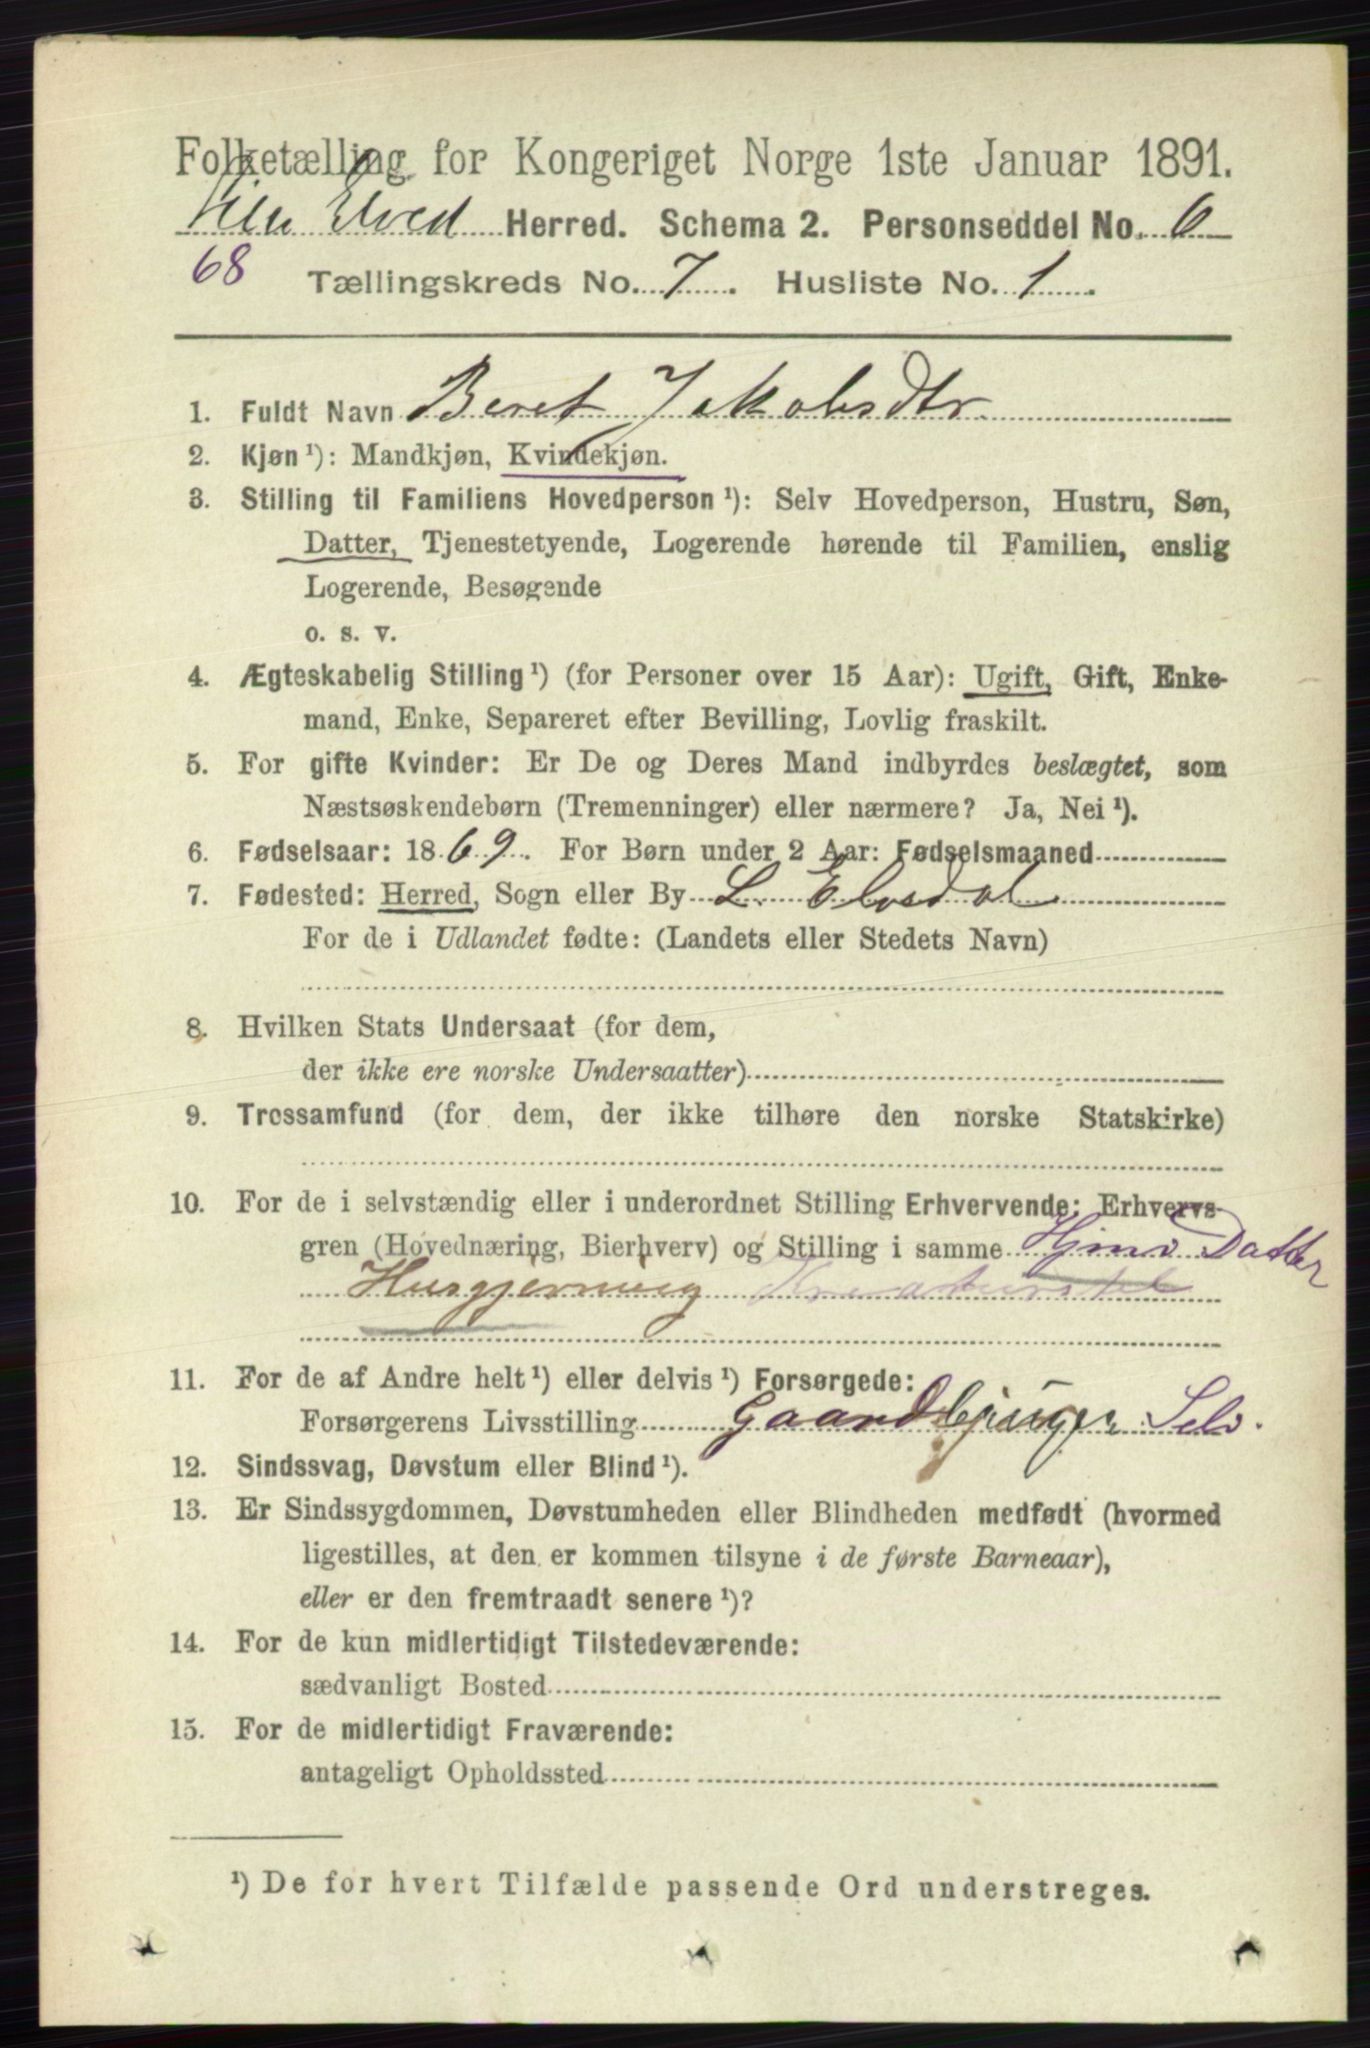 Folketælling for Kongeriget Norge 1ste Januar 1891.
Herred. Schema 2. Personseddel No. 6
68 Tællingskreds No. 7. Husliste No. 1.
1. Fuldt Navn Beret Jakobsdtr
2. Kjøn ¹): Mandkjøn, Kvindekjøn.
3. Stilling til Familiens Hovedperson ¹): Selv Hovedperson, Hustru, Søn,
Datter, Tjenestetyende, Logerende hørende til Familien, enslig
Logerende, Besøgende
o. s. v.
4. Ægteskabelig Stilling ¹) (for Personer over 15 Aar): Ugift, Gift, Enke-
mand, Enke, Separeret efter Bevilling, Lovlig fraskilt.
5. For gifte Kvinder: Er De og Deres Mand indbyrdes beslægtet, som
Næstsøskendebørn (Tremenninger) eller nærmere? Ja, Nei ¹).
6. Fødselsaar: 1869. For Børn under 2 Aar: Fødselsmaaned
7. Fødested: Herred, Sogn eller By L. Elvedal
For de i Udlandet fødte: (Landets eller Stedets Navn)
8. Hvilken Stats Undersaat (for dem,
der ikke ere norske Undersaatter)
9. Trossamfund (for dem, der ikke tilhøre den norske Statskirke)
10. For de i selvstændig eller i underordnet Stilling Erhvervende: Erhvervs-
gren (Hovednæring, Bierhverv) og Stilling i samme Hjmv Datter
Husgjerning Kreaturstel
11. For de af Andre helt ¹) eller delvis ¹) Forsørgede:
Forsørgerens Livsstilling Gaardbruger Selv.
12. Sindssvag, Døvstum eller Blind ¹).
13. Er Sindssygdommen, Døvstumheden eller Blindheden medfødt (hvormed
ligestilles, at den er kommen tilsyne i de første Barneaar),
eller er den fremtraadt senere ¹)?
14. For de kun midlertidigt Tilstedeværende:
sædvanligt Bosted
15. For de midlertidigt Fraværende:
antageligt Opholdssted
¹) De for hvert Tilfælde passende Ord understreges.